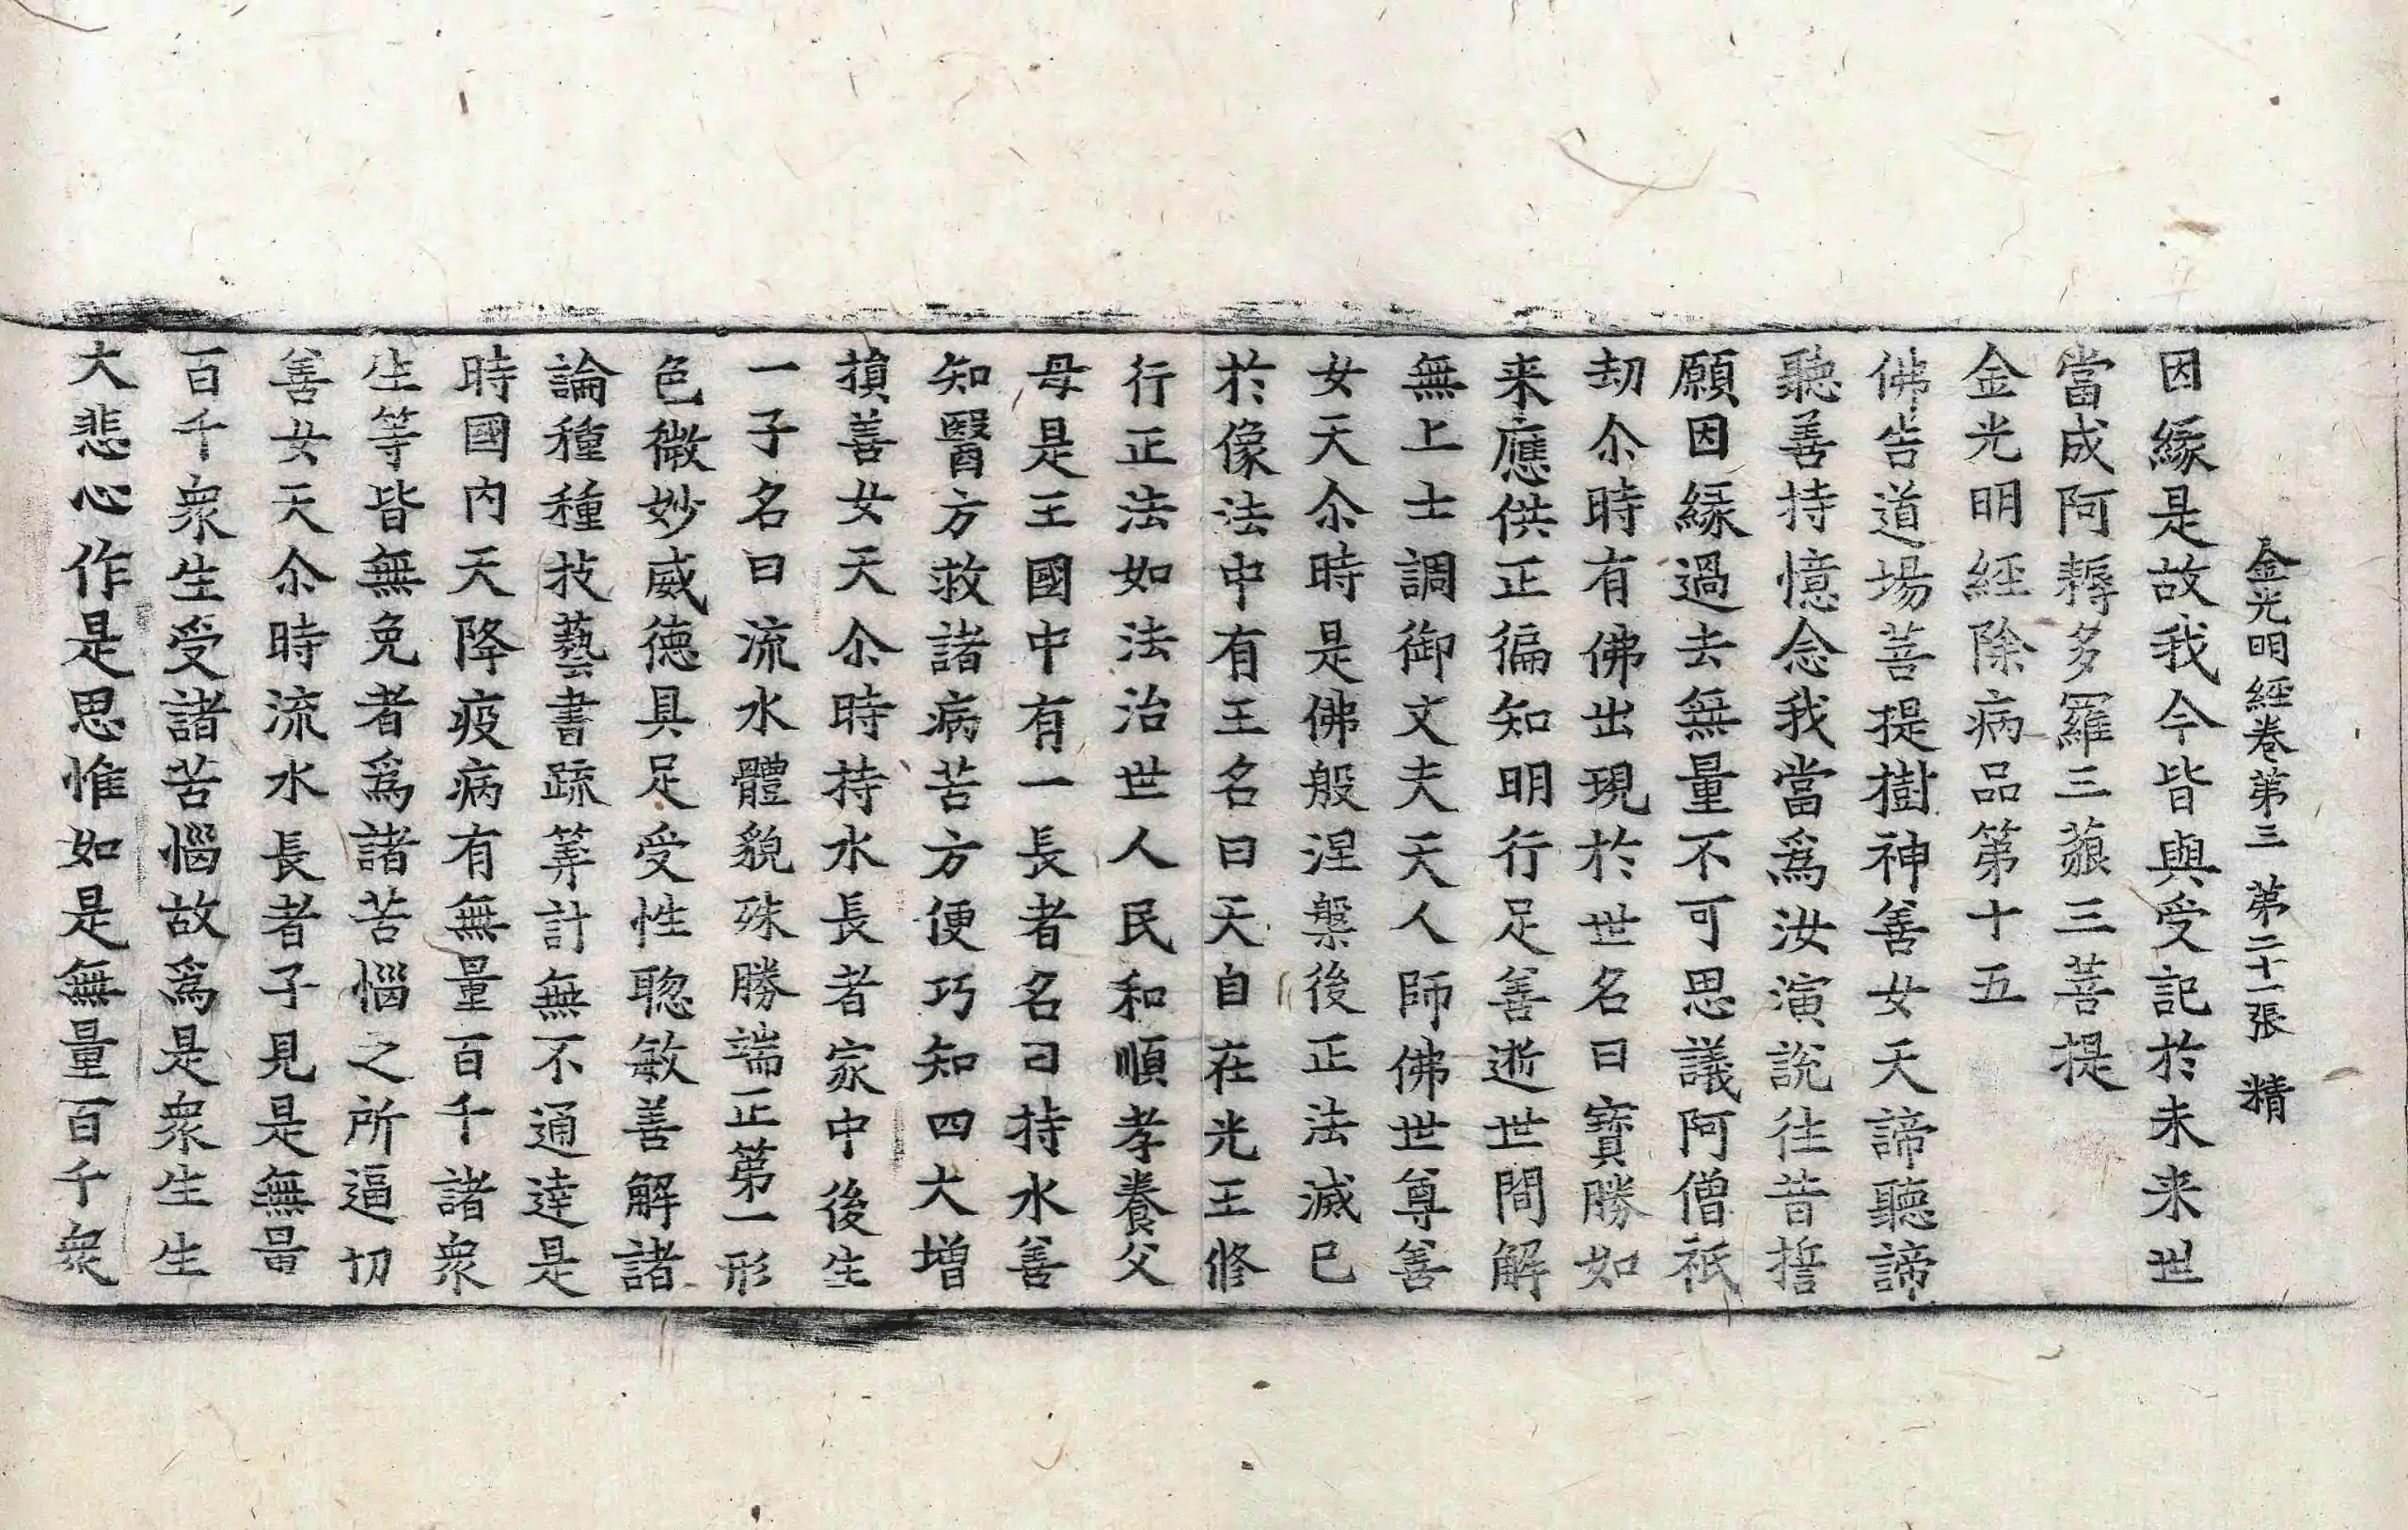 金光明經卷第三 第二十一張 精
因緣是故我今皆與受記於未来世
當成阿耨多羅三藐三菩提
金光明經除病品第十五
佛告道場菩提樹神善女天諦聽諦
聽善持憶念我當爲汝演說往昔誓
願因緣過去無量不可思議阿僧祇
劫尒時有佛出現於世名曰寶勝如
来應供正徧知明行足善逝世間解
無上士調御丈夫天人師佛世尊善
女天尒時是佛般涅槃後正法滅已
於像法中有王名曰天自在光王修
行正法如法治世人民和順孝養父
母是王國中有一長者名曰持水善
知醫方救諸病苦方便巧知四大增
損善女天尒時持水長者家中後生
一子名曰流水體貌殊勝端正第一形
色微妙威德具足受性聦敏善解諸
論種種技藝書疏筭計無不通達是
時國内天降疫病有無量百千諸衆
生等皆無免者爲諸苦惱之所逼切
善女天尒時流水長者子見是無量
百千衆生受諸苦惱故爲是衆生生
大悲心作是思惟如是無量百千衆